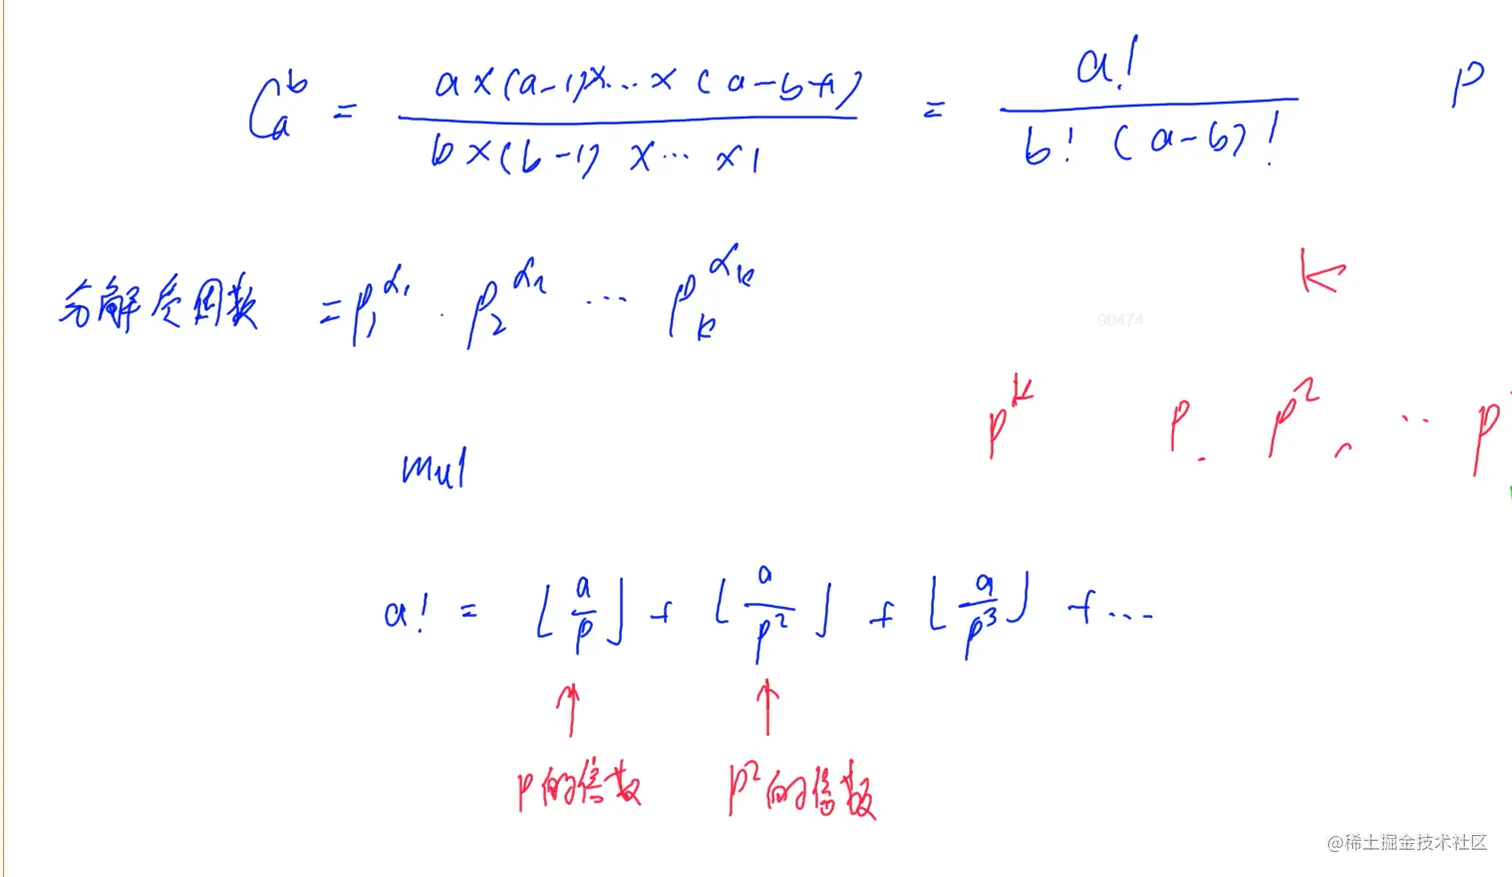 C_a^b = a×(a-1)×…×(a-b+1) / b×(b-1)×…×1 = a! / b!(a-b)! P
分解质因数 = P₁^α₁ · P₂^α₂ … P_k^α_k
k
90474
p^k p. p² , … p
mul
a! = ⌊a/p⌋ + ⌊a/p²⌋ + ⌊a/p³⌋ + …
↑ ↑
p的倍数 p²的倍数
@稀土掘金技术社区